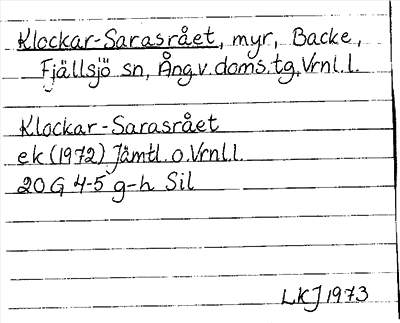 Klockar-Sarasrået, myr, Backe,
Fjällsjö sn, Ång.v.doms.tg, Vrnl.l.
Klockar-Sarasrået
ek (1972) Jämtl.o.Vrnl.l.
20G 4-5 g-h Sil
LKJ 1973